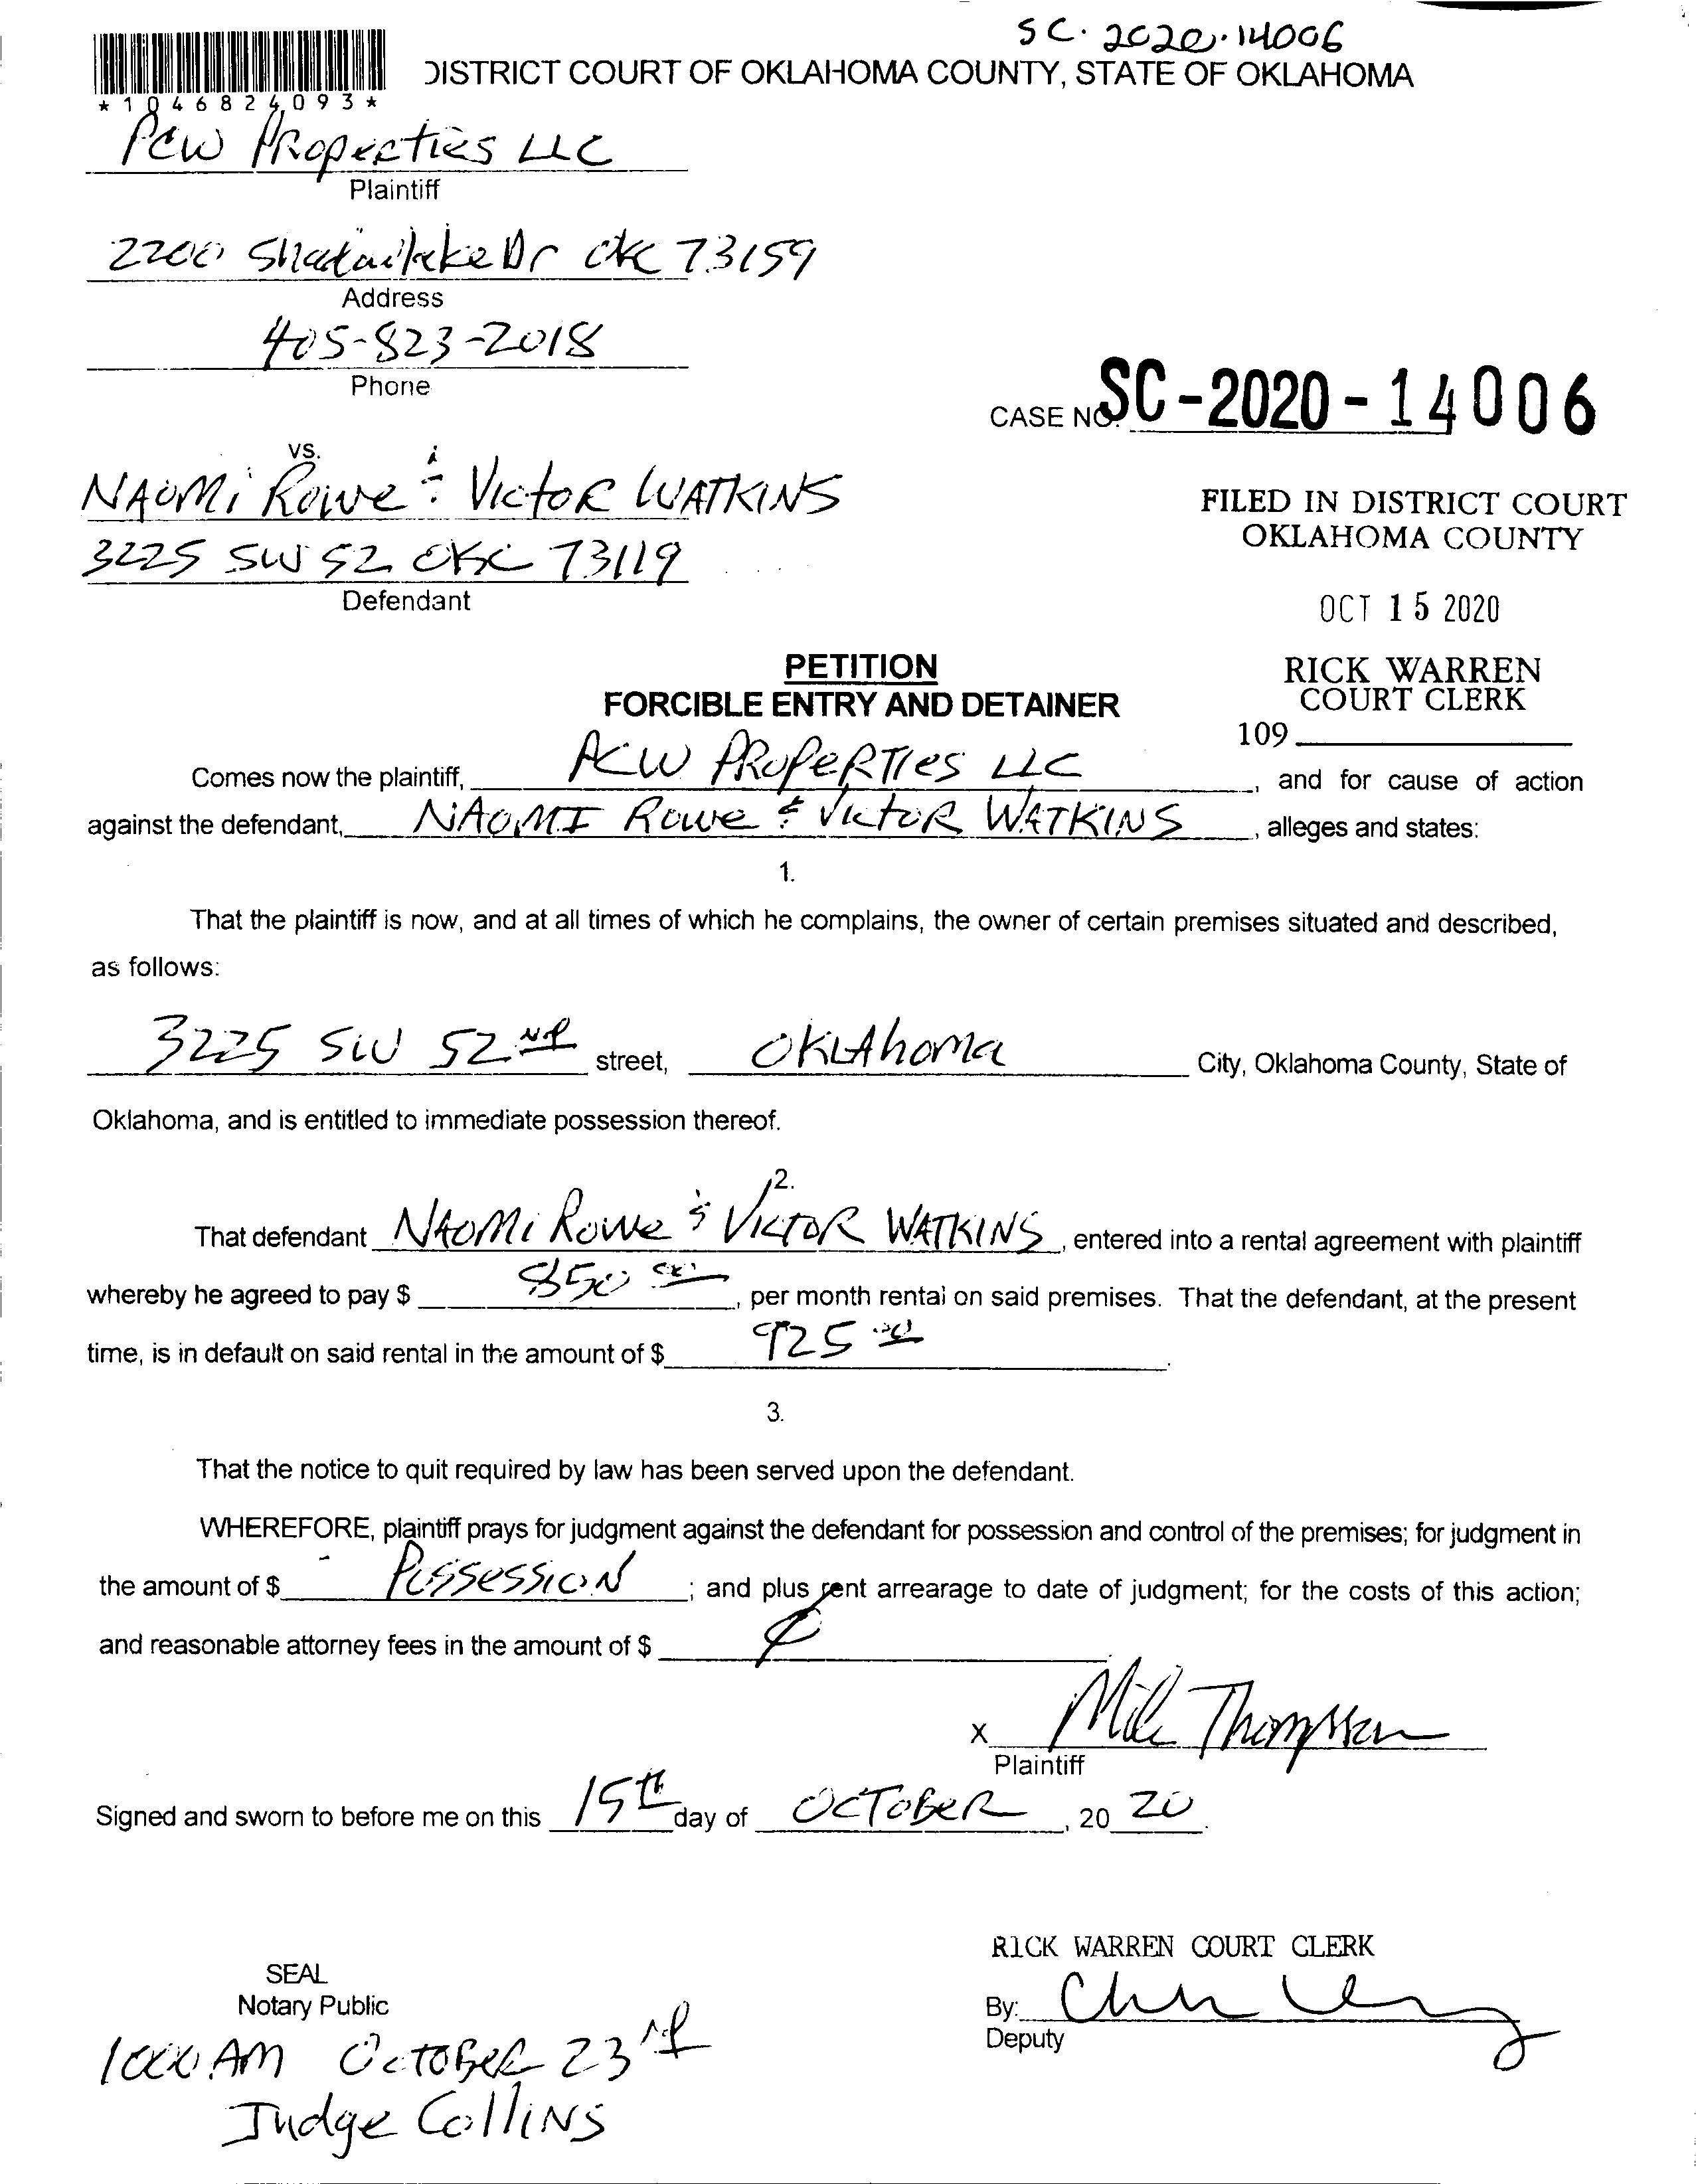 SC-2020-14006
DISTRICT COURT OF OKLAHOMA COUNTY, STATE OF OKLAHOMA
*1046824093*
PCW Properties LLC
Plaintiff
2200 Shadowlake Dr OKC 73159
Address
405-823-2018
Phone
CASE NO. SC-2020-14006
vs.
NAOMi Rowe & Victor WATKINS
3225 SW 52 OKC 73119
Defendant
FILED IN DISTRICT COURT
OKLAHOMA COUNTY
OCT 15 2020
RICK WARREN
COURT CLERK
109
PETITION
FORCIBLE ENTRY AND DETAINER
Comes now the plaintiff, PCW PROPeRTies LLC, and for cause of action
against the defendant, NAOMI Rowe & Victor WATKINS, alleges and states:
1.
That the plaintiff is now, and at all times of which he complains, the owner of certain premises situated and described,
as follows:
3225 SW 52nd street, OKLAhoma City, Oklahoma County, State of
Oklahoma, and is entitled to immediate possession thereof.
2.
That defendant NAOMi Rowe & VICTOR WATKINS, entered into a rental agreement with plaintiff
whereby he agreed to pay $ 850 00, per month rental on said premises. That the defendant, at the present
time, is in default on said rental in the amount of $ 925 00.
3.
That the notice to quit required by law has been served upon the defendant.
WHEREFORE, plaintiff prays for judgment against the defendant for possession and control of the premises; for judgment in
the amount of $ Possession; and plus rent arrearage to date of judgment; for the costs of this action;
and reasonable attorney fees in the amount of $
X Mike Thompson
Plaintiff
Signed and sworn to before me on this 15th day of OCTOBER, 20 20.
RICK WARREN COURT CLERK
SEAL
Notary Public
By:
Deputy
1000 AM OCTOBER 23rd
Judge Collins